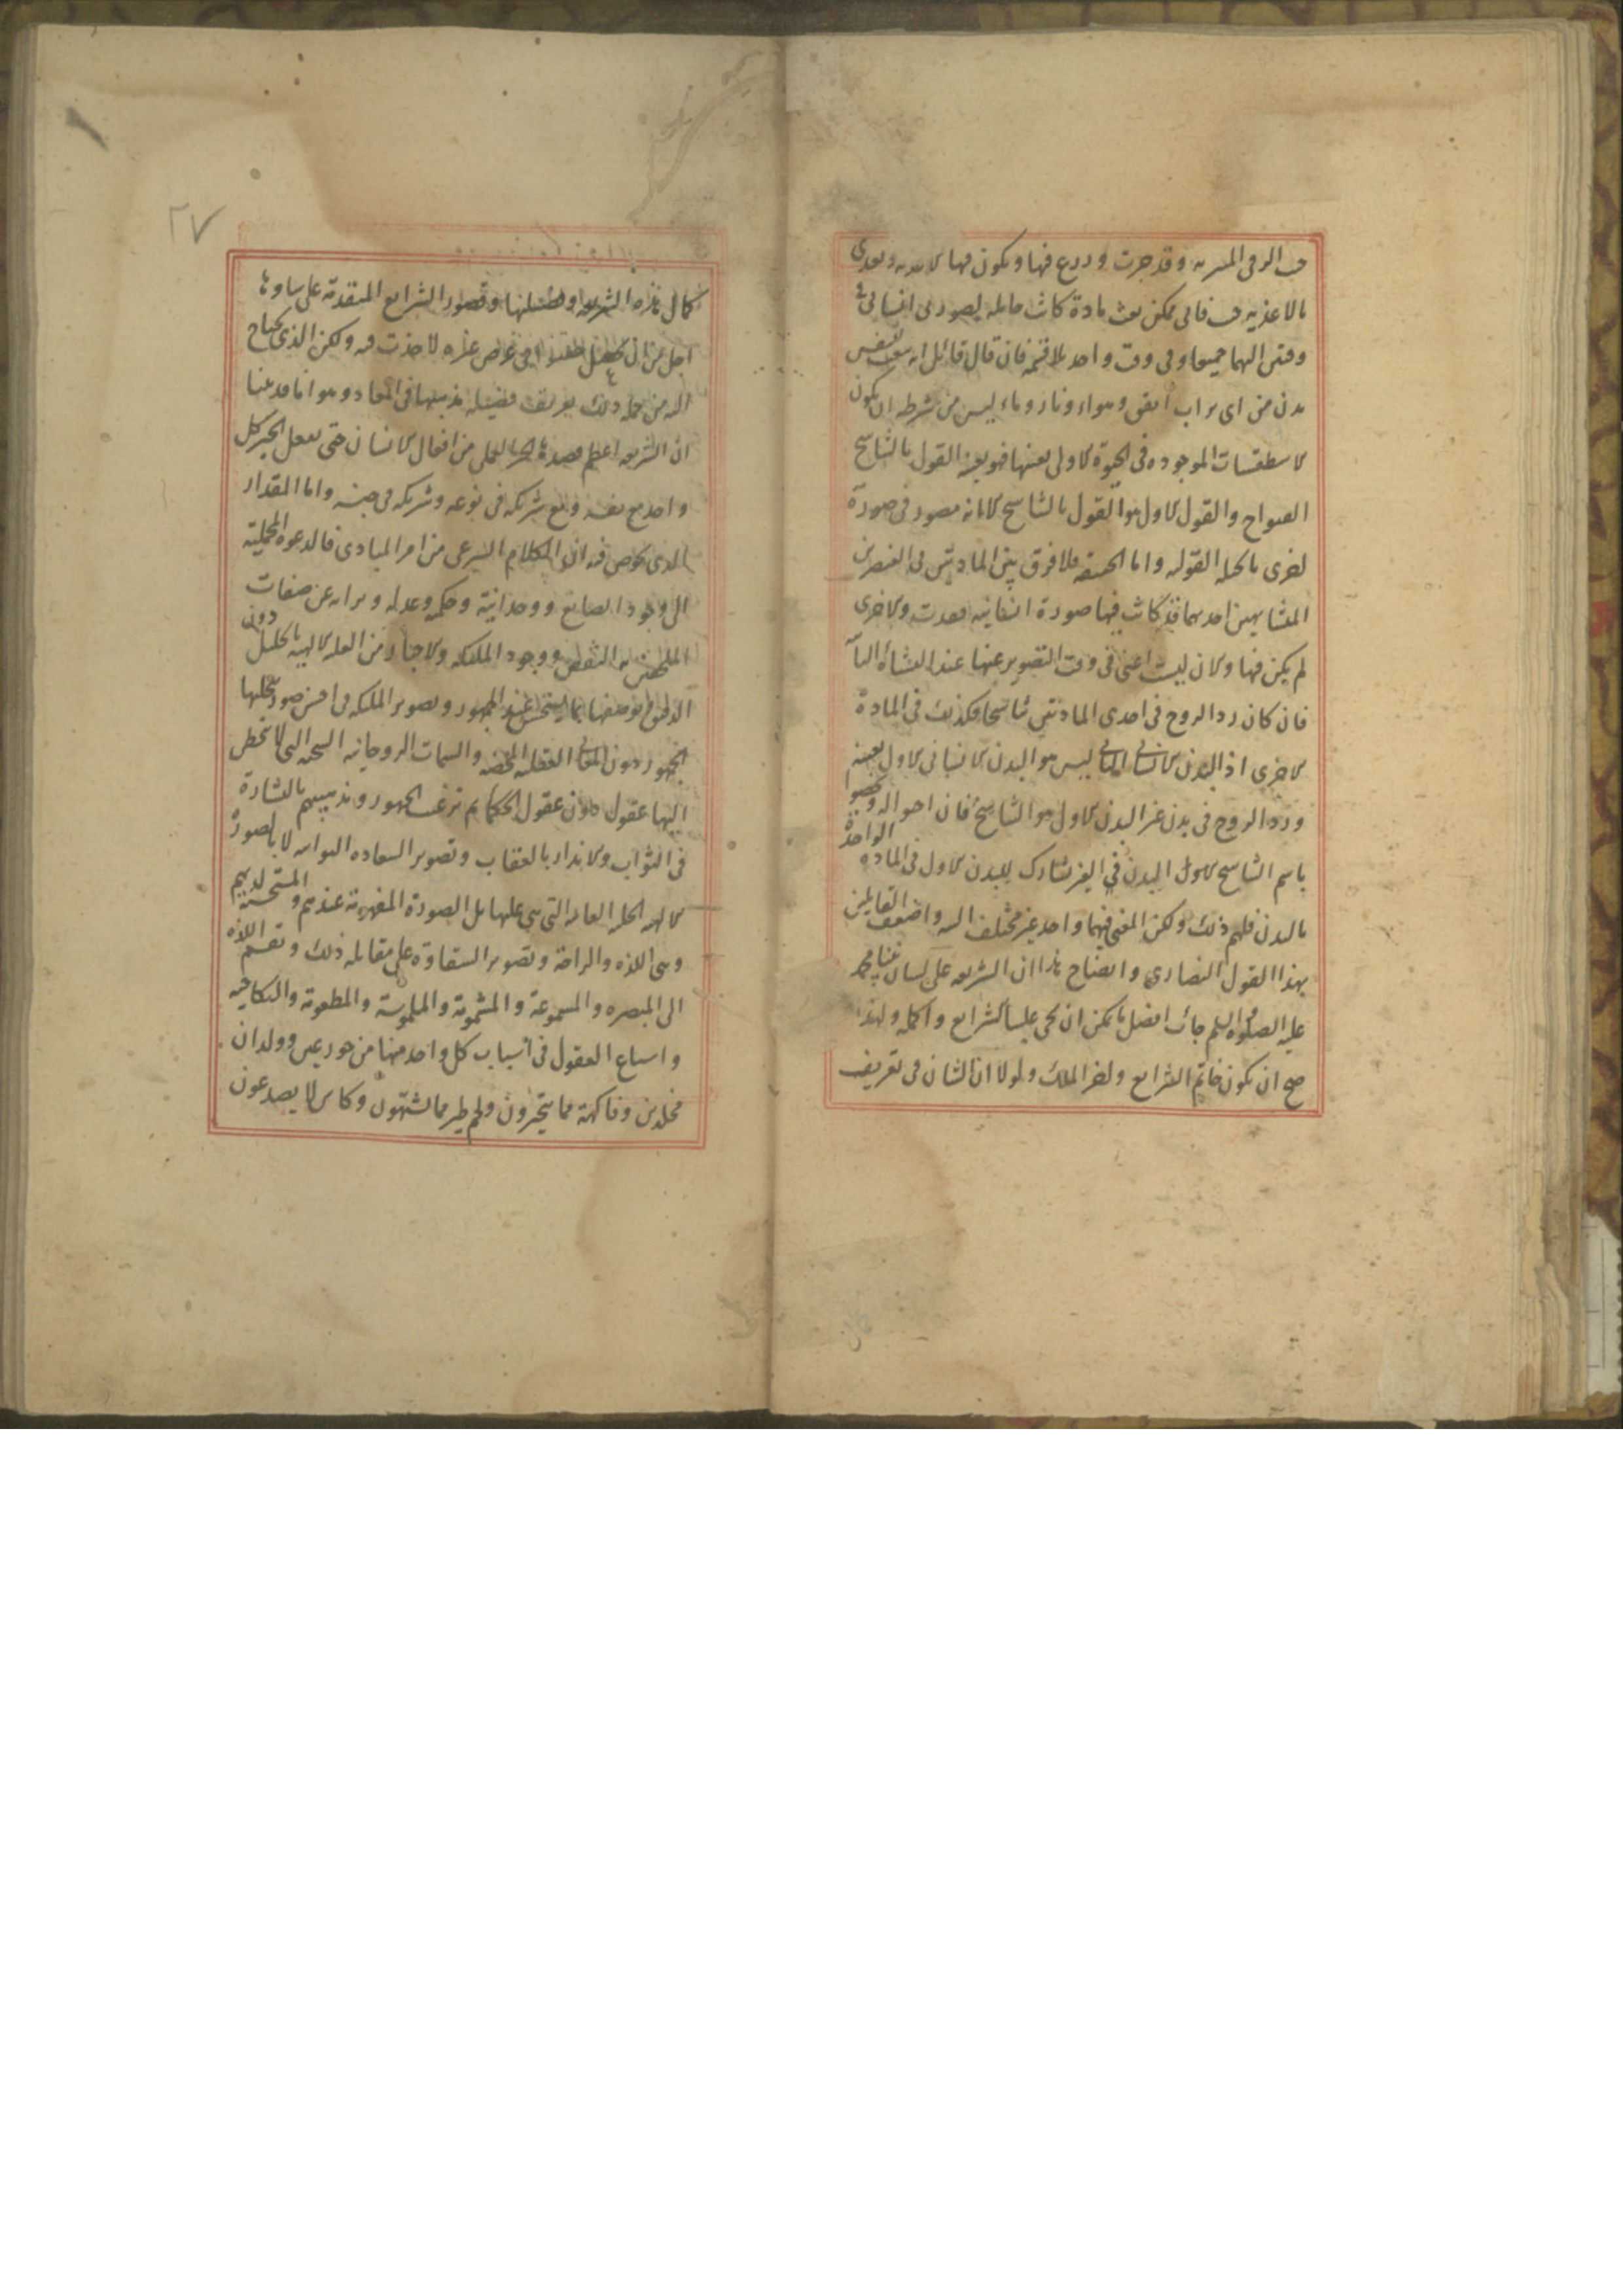 وقد جرت وزرع فيها ويكون فيها الاغذية وتغذى
بالاغذية فانى يمكن بعث مادة كانت حاملة لصورتى انسانى فى
وقتين اليهما جميعا وفى وقت واحد بلا قسمة فان قال قائل انه يبعث للنفس
بدن من اى تراب اتفق وهواء ونار وماء ليس من شرطه ان يكون
الاسطقسات الموجودة فى الحيوة الاولى بعينها فهو بعينه القول بالتناسخ
الصراح والقول الاول هو القول بالتناسخ الا انه مصور فى صورة
اخرى بالحيلة القولية واما الحقيقة فلا فرق بين المادتين فى العنصرين
المتشابهين احديهما قد كانت فيها صورة انسانية فعدمت والاخرى
لم يكن فيها والان ليست اعنى فى وقت التصوير عنها عند النشأة الثانية
فان كان رد الروح فى احدى المادتين تناسخا فكذلك فى المادة
الاخرى اذ البدن الانسانى الثانى ليس هو البدن الانسانى الاول بعينه
ورد الروح فى بدن غير البدن الاول هو التناسخ فان احبوا ان يخصوا
باسم التناسخ البدن الغير المشارك للبدن الاول فى المادة الواحدة
بالبدن فلهم ذلك ولكن المعنى فيهما واحد غير مختلف البتة واضعف القايلين
بهذا القول النصارى وايضاح هذا ان الشريعة على لسان نبينا محمد
عليه الصلوة والسلم جاءت افضل ما يمكن ان يجى عليه الشرايع واكمله ولهذا
صح ان يكون خاتم الشرايع واخر الملل ولولا ان الشان فى تعريف
٢٧
كمال هذه الشريعة وفضيلتها وقصور الشرايع المتقدمة على ساوتها
اجل من ان يجعل حشوا فى غرض غيره لاخذت فيه ولكن الذى يحتاج
اليه من جملة ذلك تعريف فضيلة مذهبها فى المعاد وهو انا قد علمنا
ان الشريعة اعظم قصدها الجزء العملى من افعال الانسان حتى يفعل الخير كل
واحد مع نفسه ومع شريكه فى نوعه وشريكه فى جنسه واما المقدار
الذى يخوض فيه الكلام الشرعى من امر المبادى فالدعوة الجملية
الى وجود الصانع ووحدانيته وحكمه وعدله وبراته عن صفات
النقص ووجود الملئكة والاجبار من العلة الالهية بالجليل دون
الدقيق بما يستحسن عند الجمهور وتصوير الملئكة فى احسن صورة يتخيلها
الجمهور دون المعانى العقلية المحضة والسمات الروحانية البحتة التى لا تنحط
اليها عقول دون عقول الحكما ثم ترغيب الجمهور وترهيبهم بالبشارة
فى الثواب والانذار بالعقاب وتصوير السعادة الثوابية لا بالصورة
الالهية الجليلة العالية التى هى عليها بل الصورة المفهومة عندهم والمستحسنة لديهم
وهى اللذة والراحة وتصوير الشقاوة على مقابلة ذلك وتقسيم اللذة
الى المبصرة والمسموعة والمشمومة والملموسة والمطعومة والنكاحية
واسباع العقول فى اسباب كل واحد منها من حور عين وولدان
مخلدين وفاكهة مما يتخيرون ولحم طير مما يشتهون وكاس لا يصدعون